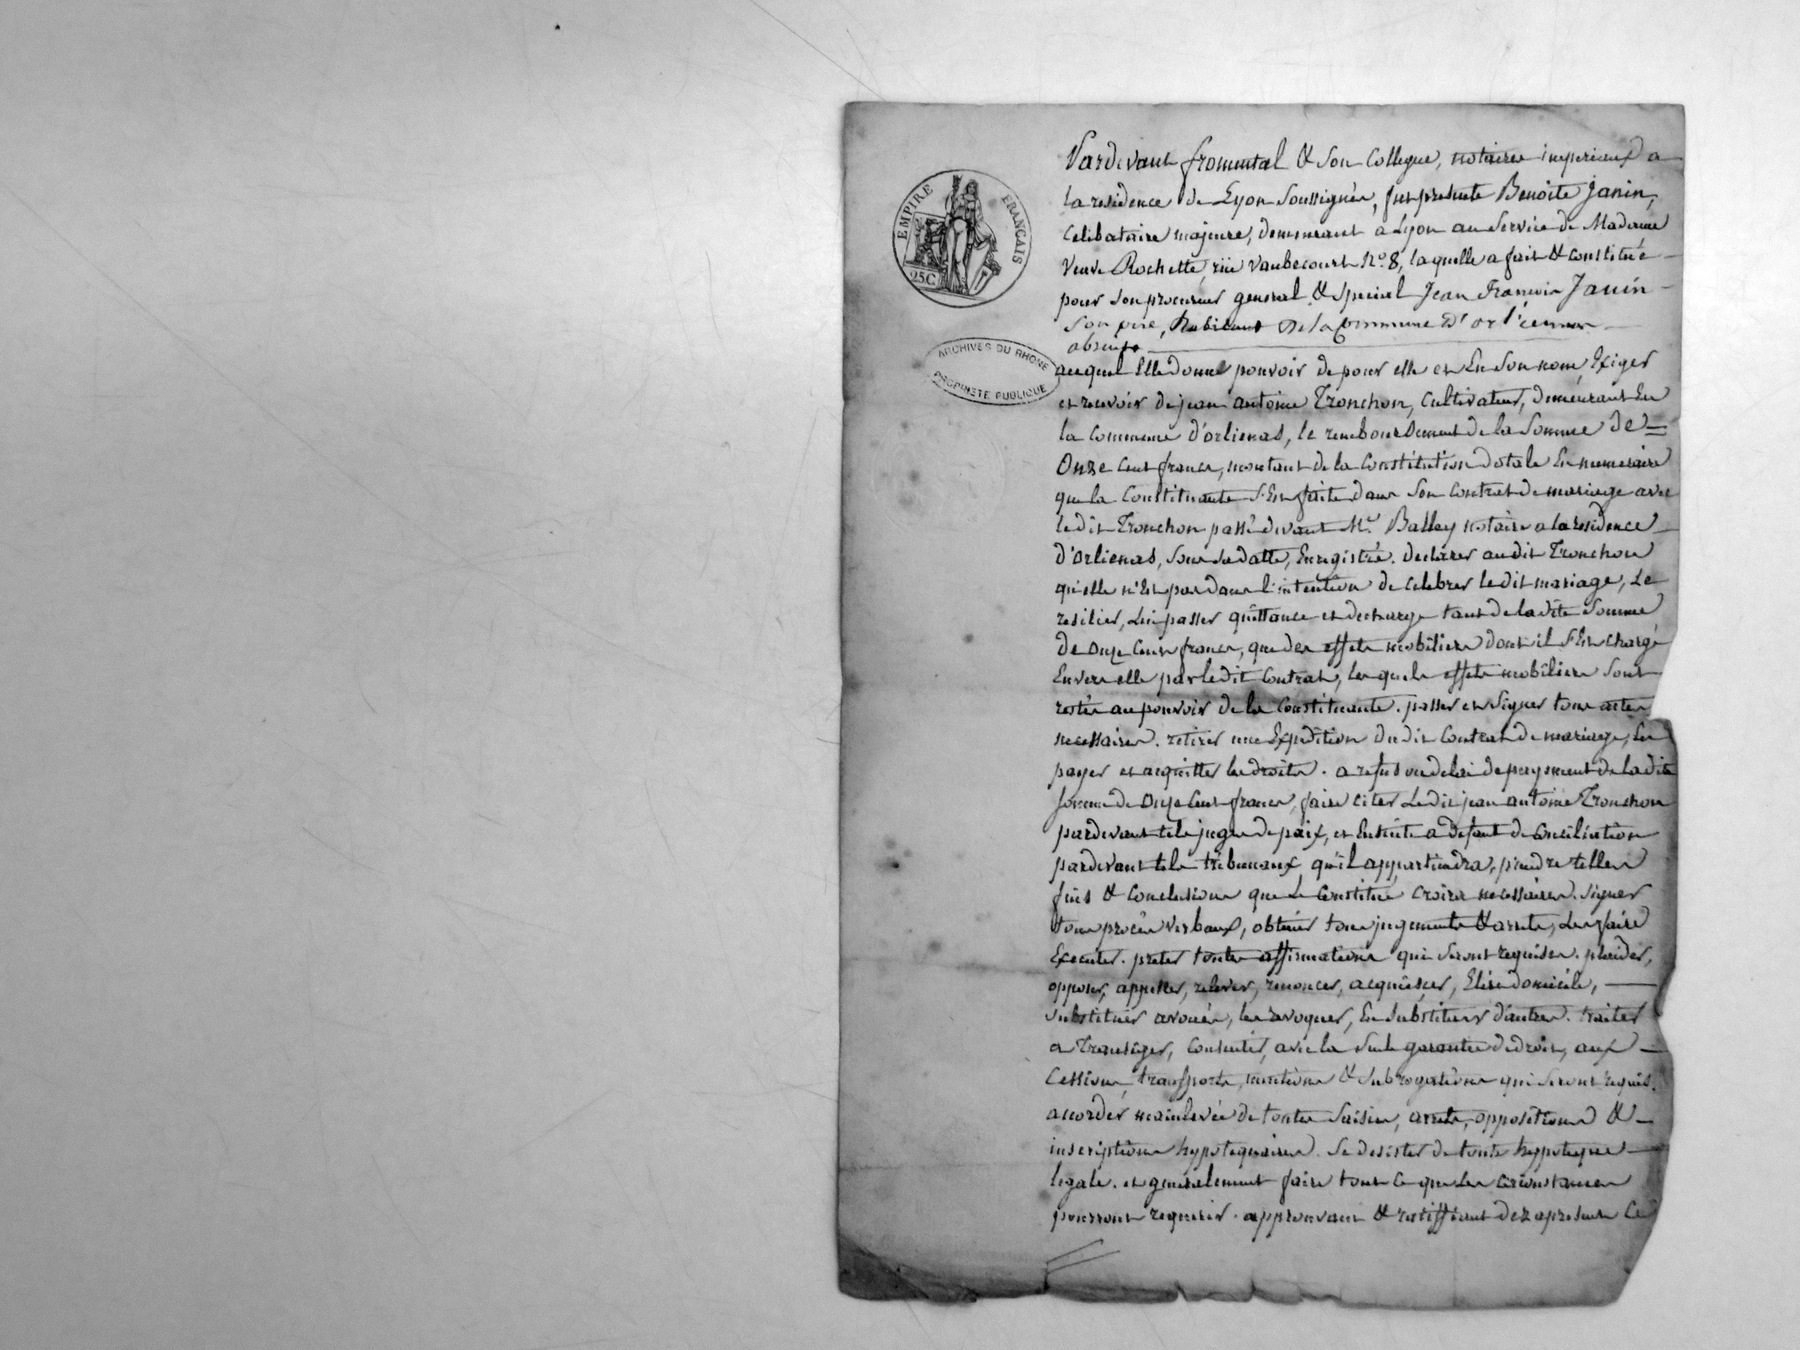 EMPIRE FRANÇAIS
25C
ARCHIVES DU RHONE
PROPRIETE PUBLIQUE
Pardevant fromental & Son Collegue, notaires imperiaux a
la residence de Lyon Soussignés, fut presente Benoite Janin,
Celibataire majeure, demeurant a Lyon au Service de Madame
Veuve Rochette, rüe vaubecourt N.o 8, laquelle a fait & constitué
pour Son procureur general & Special Jean François Janin
Son pere, habitant De la Commune D'orliennas
absent
auquel Elle donne pouvoir de pour elle et En Son nom, Exiger
et recevoir de jean antoine Tronchon, Cultivateur, demeurant En
la Commune d'orlienas, le remboursement de la Somme de
Onze Cent francs, montant de la Constitution dotale En numeraire
que la Constituante S'Est faite dans Son Contrat de mariage avec
ledit Tronchon passé devant M.e Balley notaire a la residence
d'Orlienas, Sous Sa datte, Enregistré. declarer audit Tronchon
qu'elle n'Est pas dans l'intention de Celebrer ledit mariage, Le
resilier, Lui passer quittance et decharge tant de ladite Somme
de Onze Cent francs, que des effets mobiliers dont il S'Est Chargé
Envers elle par ledit Contrat, lesquels effets mobiliers Sont
restés au pouvoir de la Constituante. passer et Signer tous actes
necessaires. retirer une Expedition dudit Contrat de mariage, En
payer et acquitter les droits. a refus ou delai de payement de ladite
Somme de Onze Cent francs, faire citer Ledit jean antoine Tronchon
pardevant tels juges de paix, et Ensuite a defaut de Conciliation
pardevant tels tribunaux qu'il appartiendra, prendre telles
fins & Conclusions que Le Constitué croira necessaires. Signer
tous procès verbaux, obtenir tous jugements & arrets, Les faire
Executer. preter toutes affirmations qui Seront requises. plaider,
opposer, appeller, relever, renoncer, acquiescer, Elire domicile,
Substituer avoués, les revoquer, En Substituer d'autres. traiter
a Transiger, Consentir, avec la Seule garantie de droit, aux
Cessions, transports, mentions & Subrogations qui Seront requis.
accorder mainlevée de toutes Saisies, arrets, oppositions &
inscriptions hypotequaires. Se desister de toute hypoteque
legale. et generalement faire tout Ce que Les Circonstances
pourront requerir. approuvant & ratiffiant dez apresent Ce